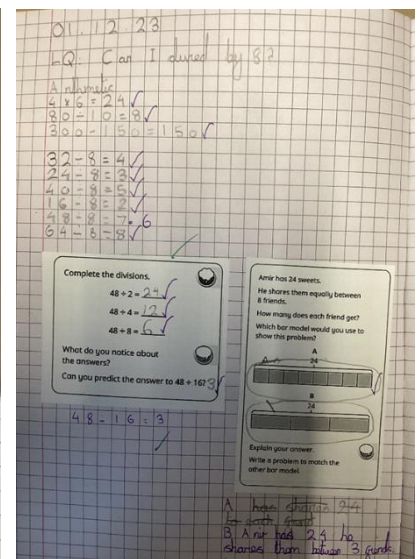 01.12.23
LQ: Can I dived by 8?
Arithmetic
4 x 6 = 24
80 - 10 = 8
300 - 150 = 150
32 - 8 = 4
24 - 8 = 3
40 - 8 = 5
16 - 8 = 2
48 - 8 = 7. 6
64 - 8 = 8
Complete the divisions.
48 ÷ 2 = 24
48 ÷ 4 = 12
48 ÷ 8 = 6
What do you notice about
the answers?
Can you predict the answer to 48 ÷ 16? 3
48 - 16 = 3
Amir has 24 sweets.
He shares them equally between
8 friends.
How many does each friend get?
Which bar model would you use to
show this problem?
A
24
B
24
Explain your answer.
Write a problem to match the
other bar model.
A has shares 24
to each
B Amir has 24 he
shares them between 3 friends